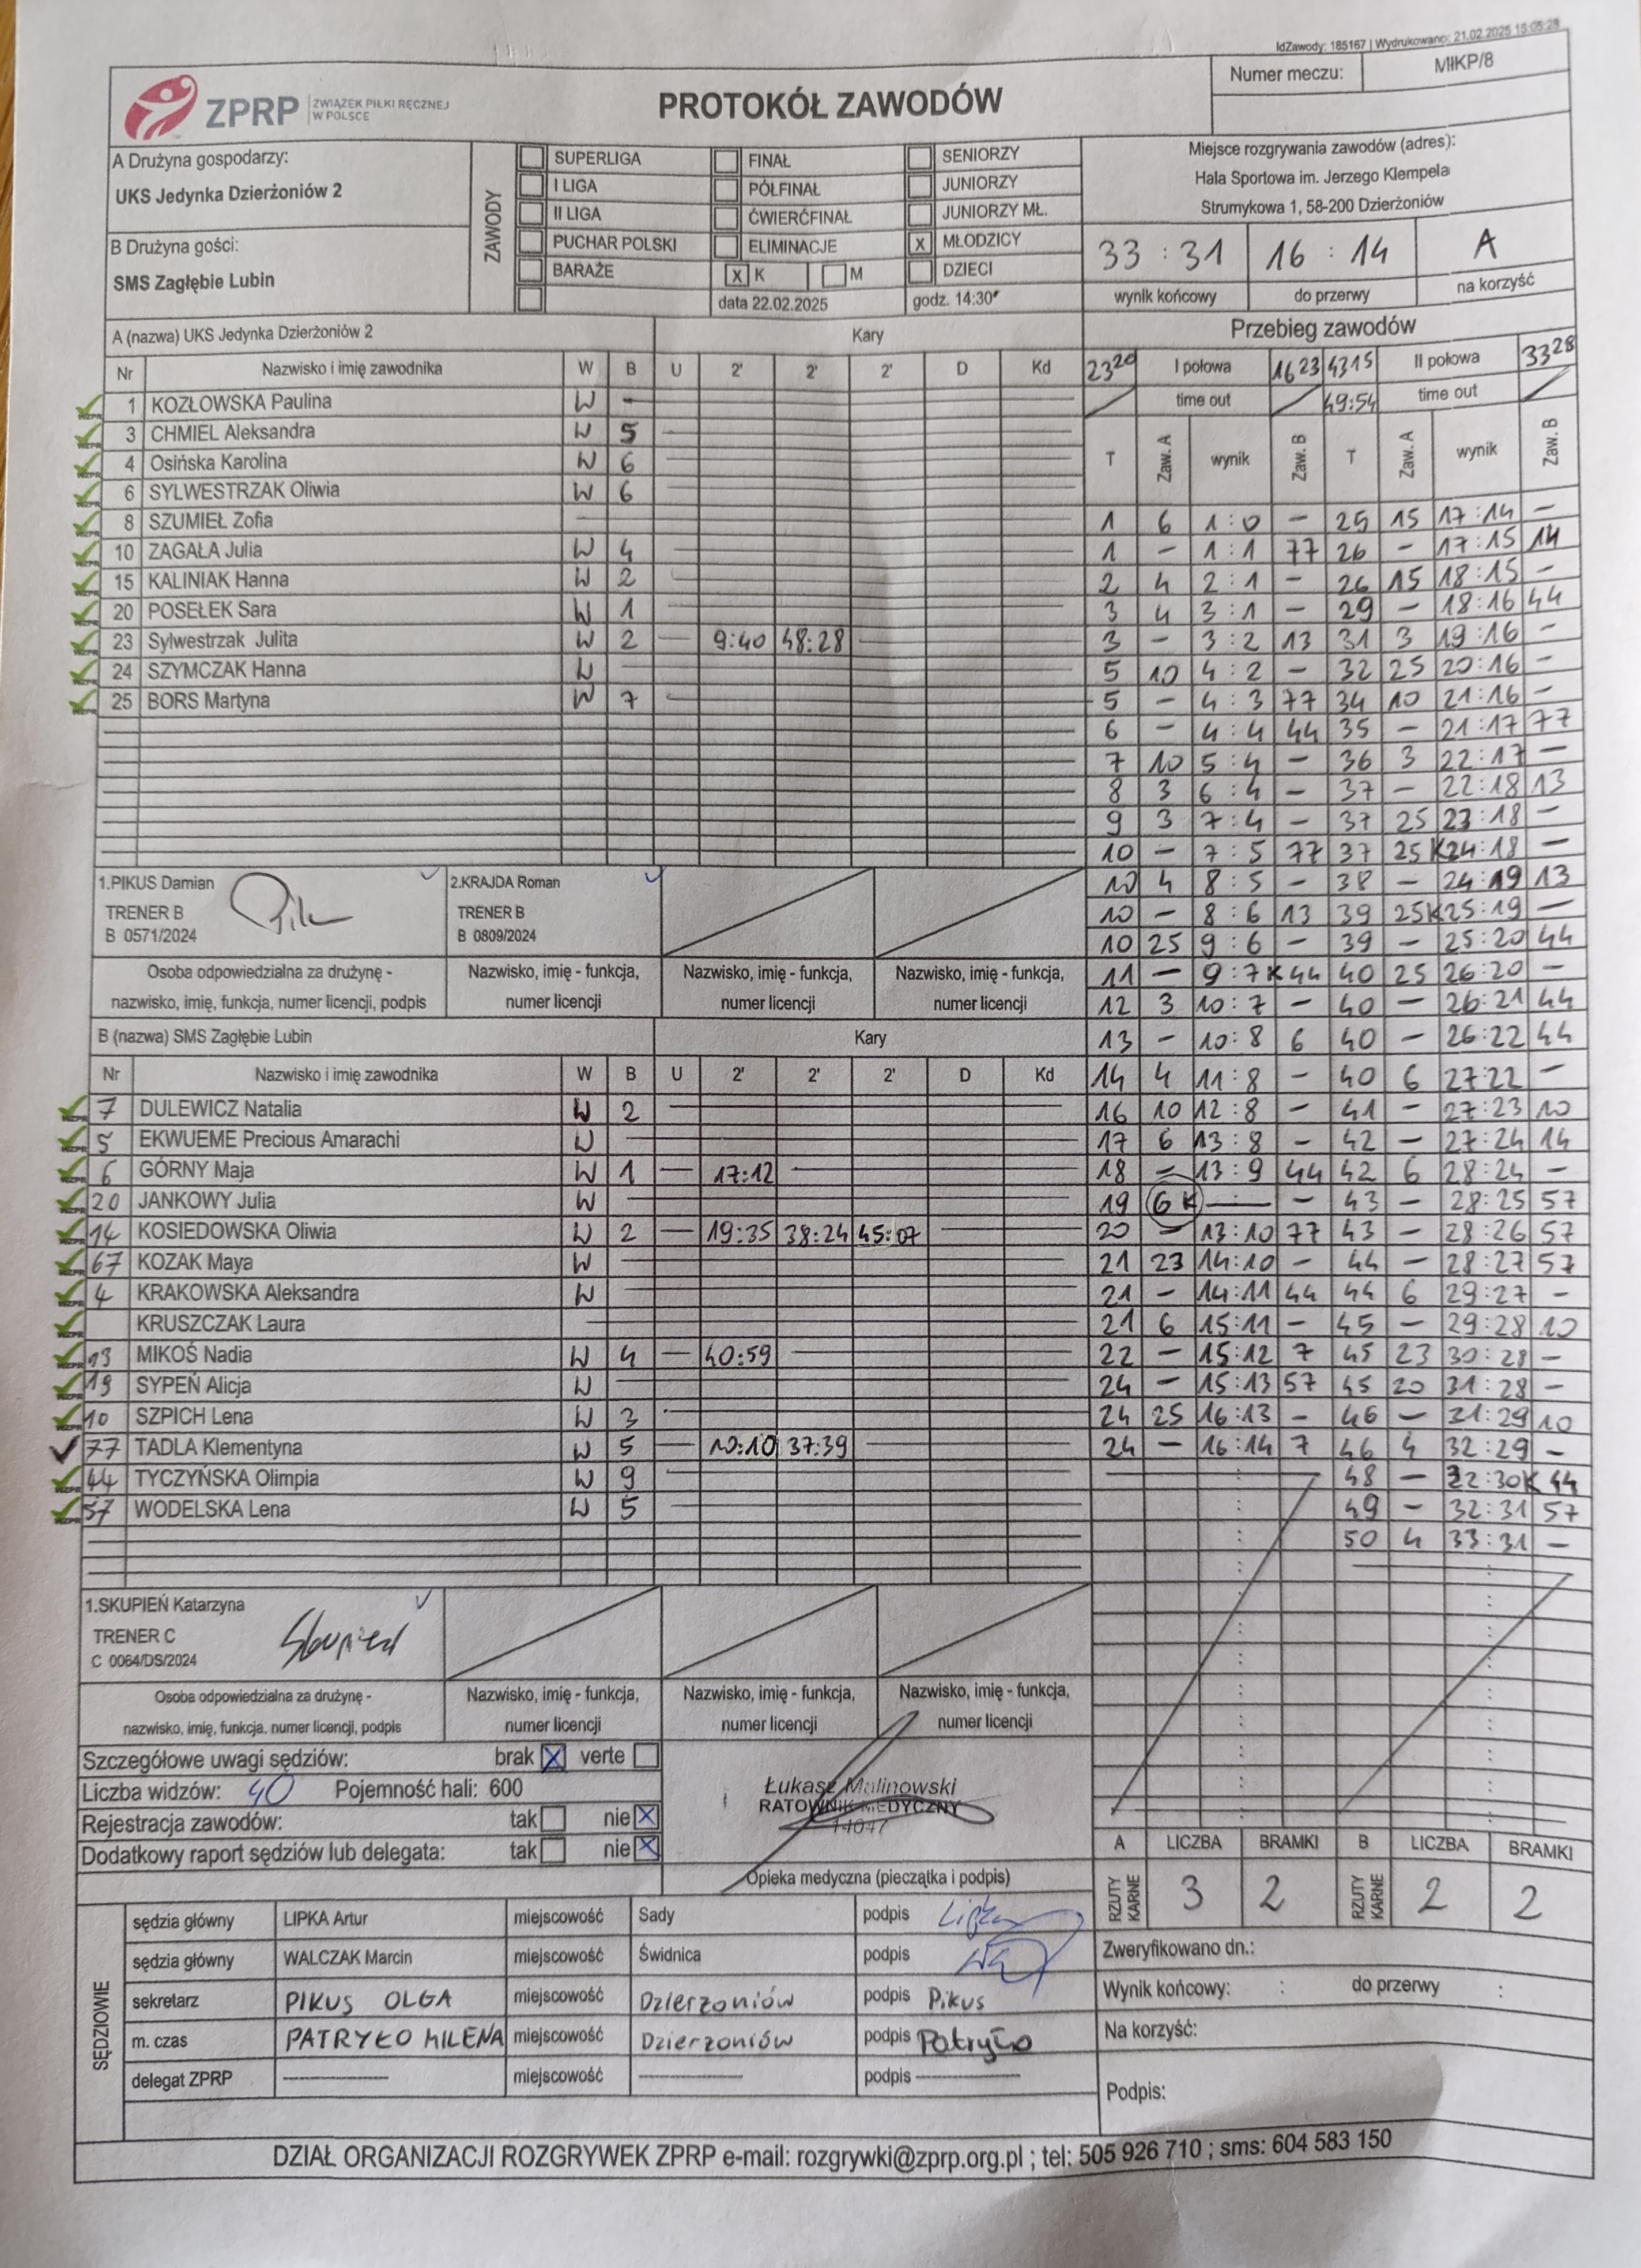 IdZawody: 185167 | Wydrukowano: 21.02.2025 15:05:28
Numer meczu: MłKP/8
ZPRP ZWIĄZEK PIŁKI RĘCZNEJ W POLSCE
PROTOKÓŁ ZAWODÓW
A Drużyna gospodarzy:
UKS Jedynka Dzierżoniów 2
B Drużyna gości:
SMS Zagłębie Lubin
ZAWODY
SUPERLIGA FINAŁ SENIORZY
I LIGA PÓŁFINAŁ JUNIORZY
II LIGA ĆWIERĆFINAŁ JUNIORZY MŁ.
PUCHAR POLSKI ELIMINACJE X MŁODZICY
BARAŻE X K M DZIECI
data 22.02.2025 godz. 14:30
Miejsce rozgrywania zawodów (adres):
Hala Sportowa im. Jerzego Klempela
Strumykowa 1, 58-200 Dzierżoniów
33 : 31 16 : 14 A
wynik końcowy do przerwy na korzyść
A (nazwa) UKS Jedynka Dzierżoniów 2 Kary
Nr Nazwisko i imię zawodnika W B U 2' 2' 2' D Kd
1 KOZŁOWSKA Paulina W -
3 CHMIEL Aleksandra W 5
4 Osińska Karolina W 6
6 SYLWESTRZAK Oliwia W 6
8 SZUMIEŁ Zofia
10 ZAGAŁA Julia W 4
15 KALINIAK Hanna W 2
20 POSEŁEK Sara W 1
23 Sylwestrzak Julita W 2 — 9:40 48:28
24 SZYMCZAK Hanna W
25 BORS Martyna W 7
1.PIKUS Damian
TRENER B
B 0571/2024
2.KRAJDA Roman
TRENER B
B 0809/2024
Osoba odpowiedzialna za drużynę - Nazwisko, imię - funkcja, Nazwisko, imię - funkcja, Nazwisko, imię - funkcja,
nazwisko, imię, funkcja, numer licencji, podpis numer licencji numer licencji numer licencji
B (nazwa) SMS Zagłębie Lubin Kary
Nr Nazwisko i imię zawodnika W B U 2' 2' 2' D Kd
7 DULEWICZ Natalia W 2
5 EKWUEME Precious Amarachi W
6 GÓRNY Maja W 1 — 17:12
20 JANKOWY Julia W
14 KOSIEDOWSKA Oliwia W 2 — 19:35 38:24 45:07
67 KOZAK Maya W
4 KRAKOWSKA Aleksandra W
KRUSZCZAK Laura
13 MIKOŚ Nadia W 4 — 40:59
19 SYPEŃ Alicja W
10 SZPICH Lena W 3
77 TADLA Klementyna W 5 — 10:10 37:39
44 TYCZYŃSKA Olimpia W 9
57 WODELSKA Lena W 5
1.SKUPIEŃ Katarzyna
TRENER C
C 0064/DS/2024
Skupień
Osoba odpowiedzialna za drużynę - Nazwisko, imię - funkcja, Nazwisko, imię - funkcja, Nazwisko, imię - funkcja,
nazwisko, imię, funkcja, numer licencji, podpis numer licencji numer licencji numer licencji
Przebieg zawodów
23 20 I połowa 16 23 43 15 II połowa 33 28
time out 49:54 time out
T Zaw. A wynik Zaw. B T Zaw. A wynik Zaw. B
1 6 1:0 - 25 15 17:14 -
1 - 1:1 77 26 - 17:15 14
2 4 2:1 - 26 15 18:15 -
3 4 3:1 - 29 - 18:16 44
3 - 3:2 13 31 3 19:16 -
5 10 4:2 - 32 25 20:16 -
5 - 4:3 77 34 10 21:16 -
6 - 4:4 44 35 - 21:17 77
7 10 5:4 - 36 3 22:17 -
8 3 6:4 - 37 - 22:18 13
9 3 7:4 - 37 25 23:18 -
10 - 7:5 77 37 25K 24:18 -
10 4 8:5 - 38 - 24:19 13
10 - 8:6 13 39 25K 25:19 -
10 25 9:6 - 39 - 25:20 44
11 - 9:7 K44 40 25 26:20 -
12 3 10:7 - 40 - 26:21 44
13 - 10:8 6 40 - 26:22 44
14 4 11:8 - 40 6 27:22 -
16 10 12:8 - 41 - 27:23 10
17 6 13:8 - 42 - 27:24 14
18 - 13:9 44 42 6 28:24 -
19 6K — - 43 - 28:25 57
20 - 13:10 77 43 - 28:26 57
21 23 14:10 - 44 - 28:27 57
21 - 14:11 44 44 6 29:27 -
21 6 15:11 - 45 - 29:28 10
22 - 15:12 7 45 23 30:28 -
24 - 15:13 57 45 20 31:28 -
24 25 16:13 - 46 - 31:29 10
24 - 16:14 7 46 4 32:29 -
48 - 32:30 K 44
49 - 32:31 57
50 4 33:31 -
Szczegółowe uwagi sędziów: brak X verte
Liczba widzów: 40 Pojemność hali: 600
Rejestracja zawodów: tak nie X
Dodatkowy raport sędziów lub delegata: tak nie X
Łukasz Malinowski
RATOWNIK MEDYCZNY
14047
Opieka medyczna (pieczątka i podpis)
A LICZBA BRAMKI B LICZBA BRAMKI
RZUTY KARNE 3 2 RZUTY KARNE 2 2
SĘDZIOWIE
sędzia główny LIPKA Artur miejscowość Sady podpis Lipka
sędzia główny WALCZAK Marcin miejscowość Świdnica podpis
sekretarz PIKUS OLGA miejscowość Dzierżoniów podpis Pikus
m. czas PATRYŁO MILENA miejscowość Dzierżoniów podpis Patryło
delegat ZPRP miejscowość podpis
Zweryfikowano dn.:
Wynik końcowy: : do przerwy :
Na korzyść:
Podpis:
DZIAŁ ORGANIZACJI ROZGRYWEK ZPRP e-mail: rozgrywki@zprp.org.pl ; tel: 505 926 710 ; sms: 604 583 150